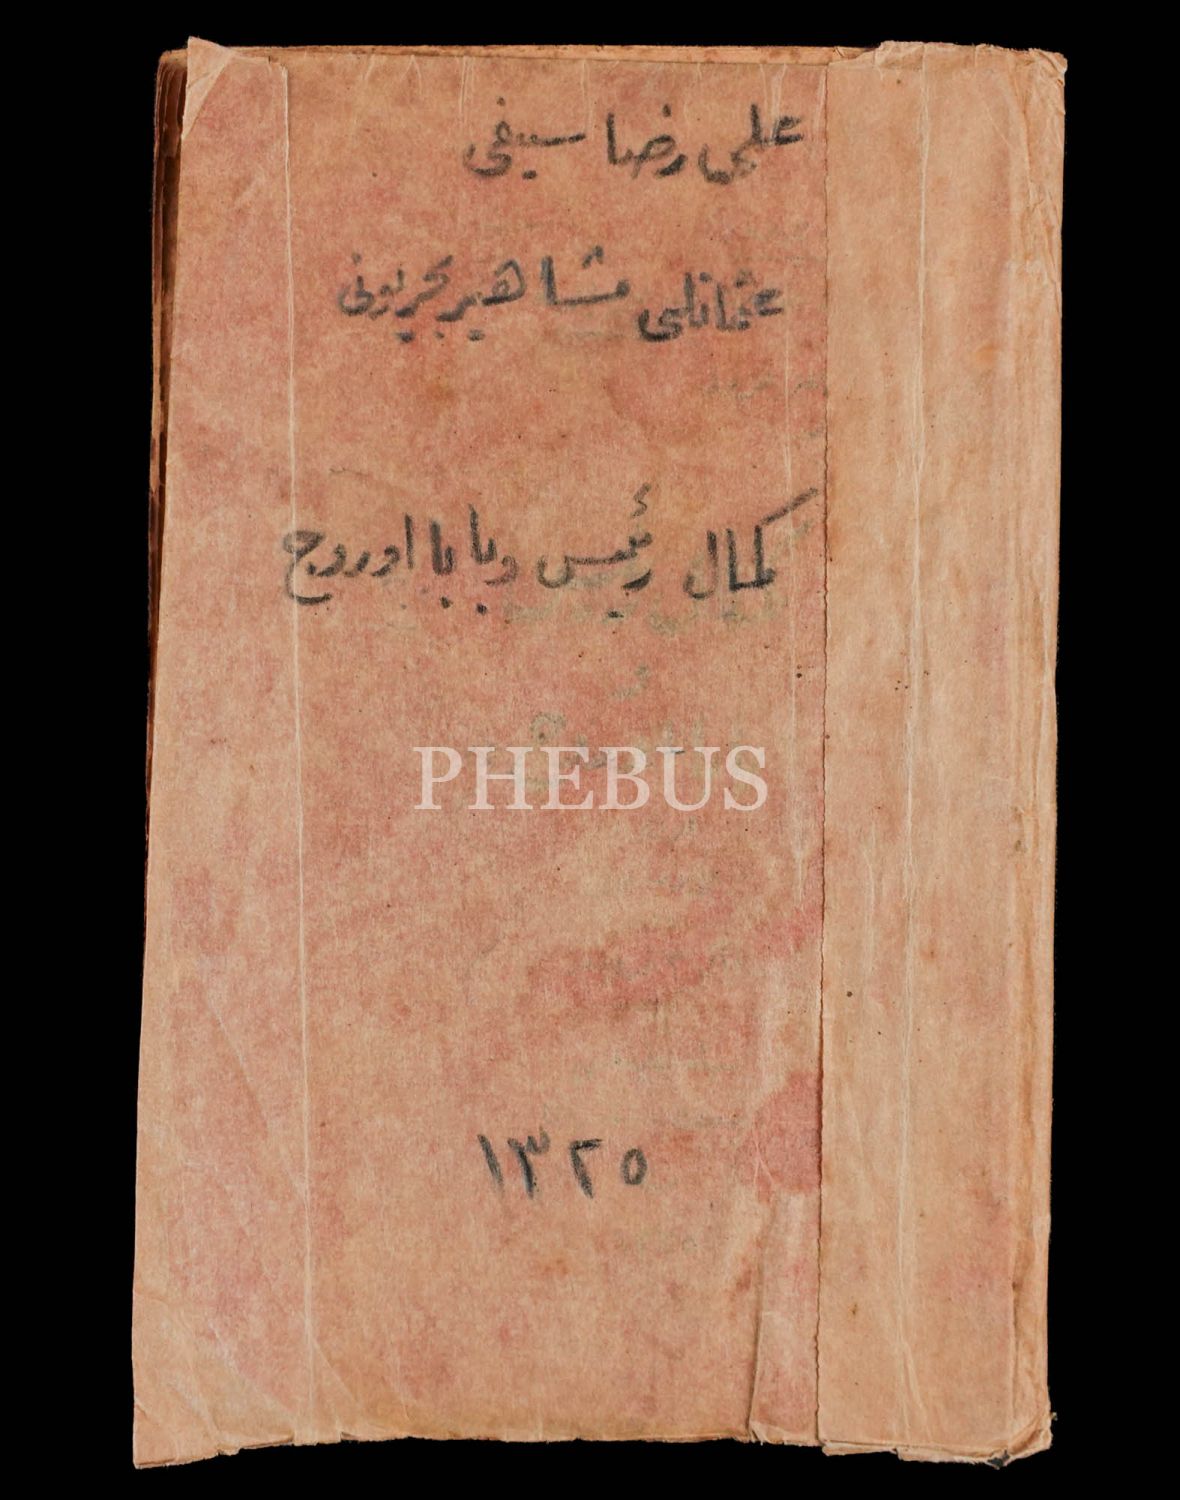 علی رضا سیفی
عثمانلی مشاهیر بحریونی
کمال رئیس و بابا اوروج
PHEBUS
١٣٢٥